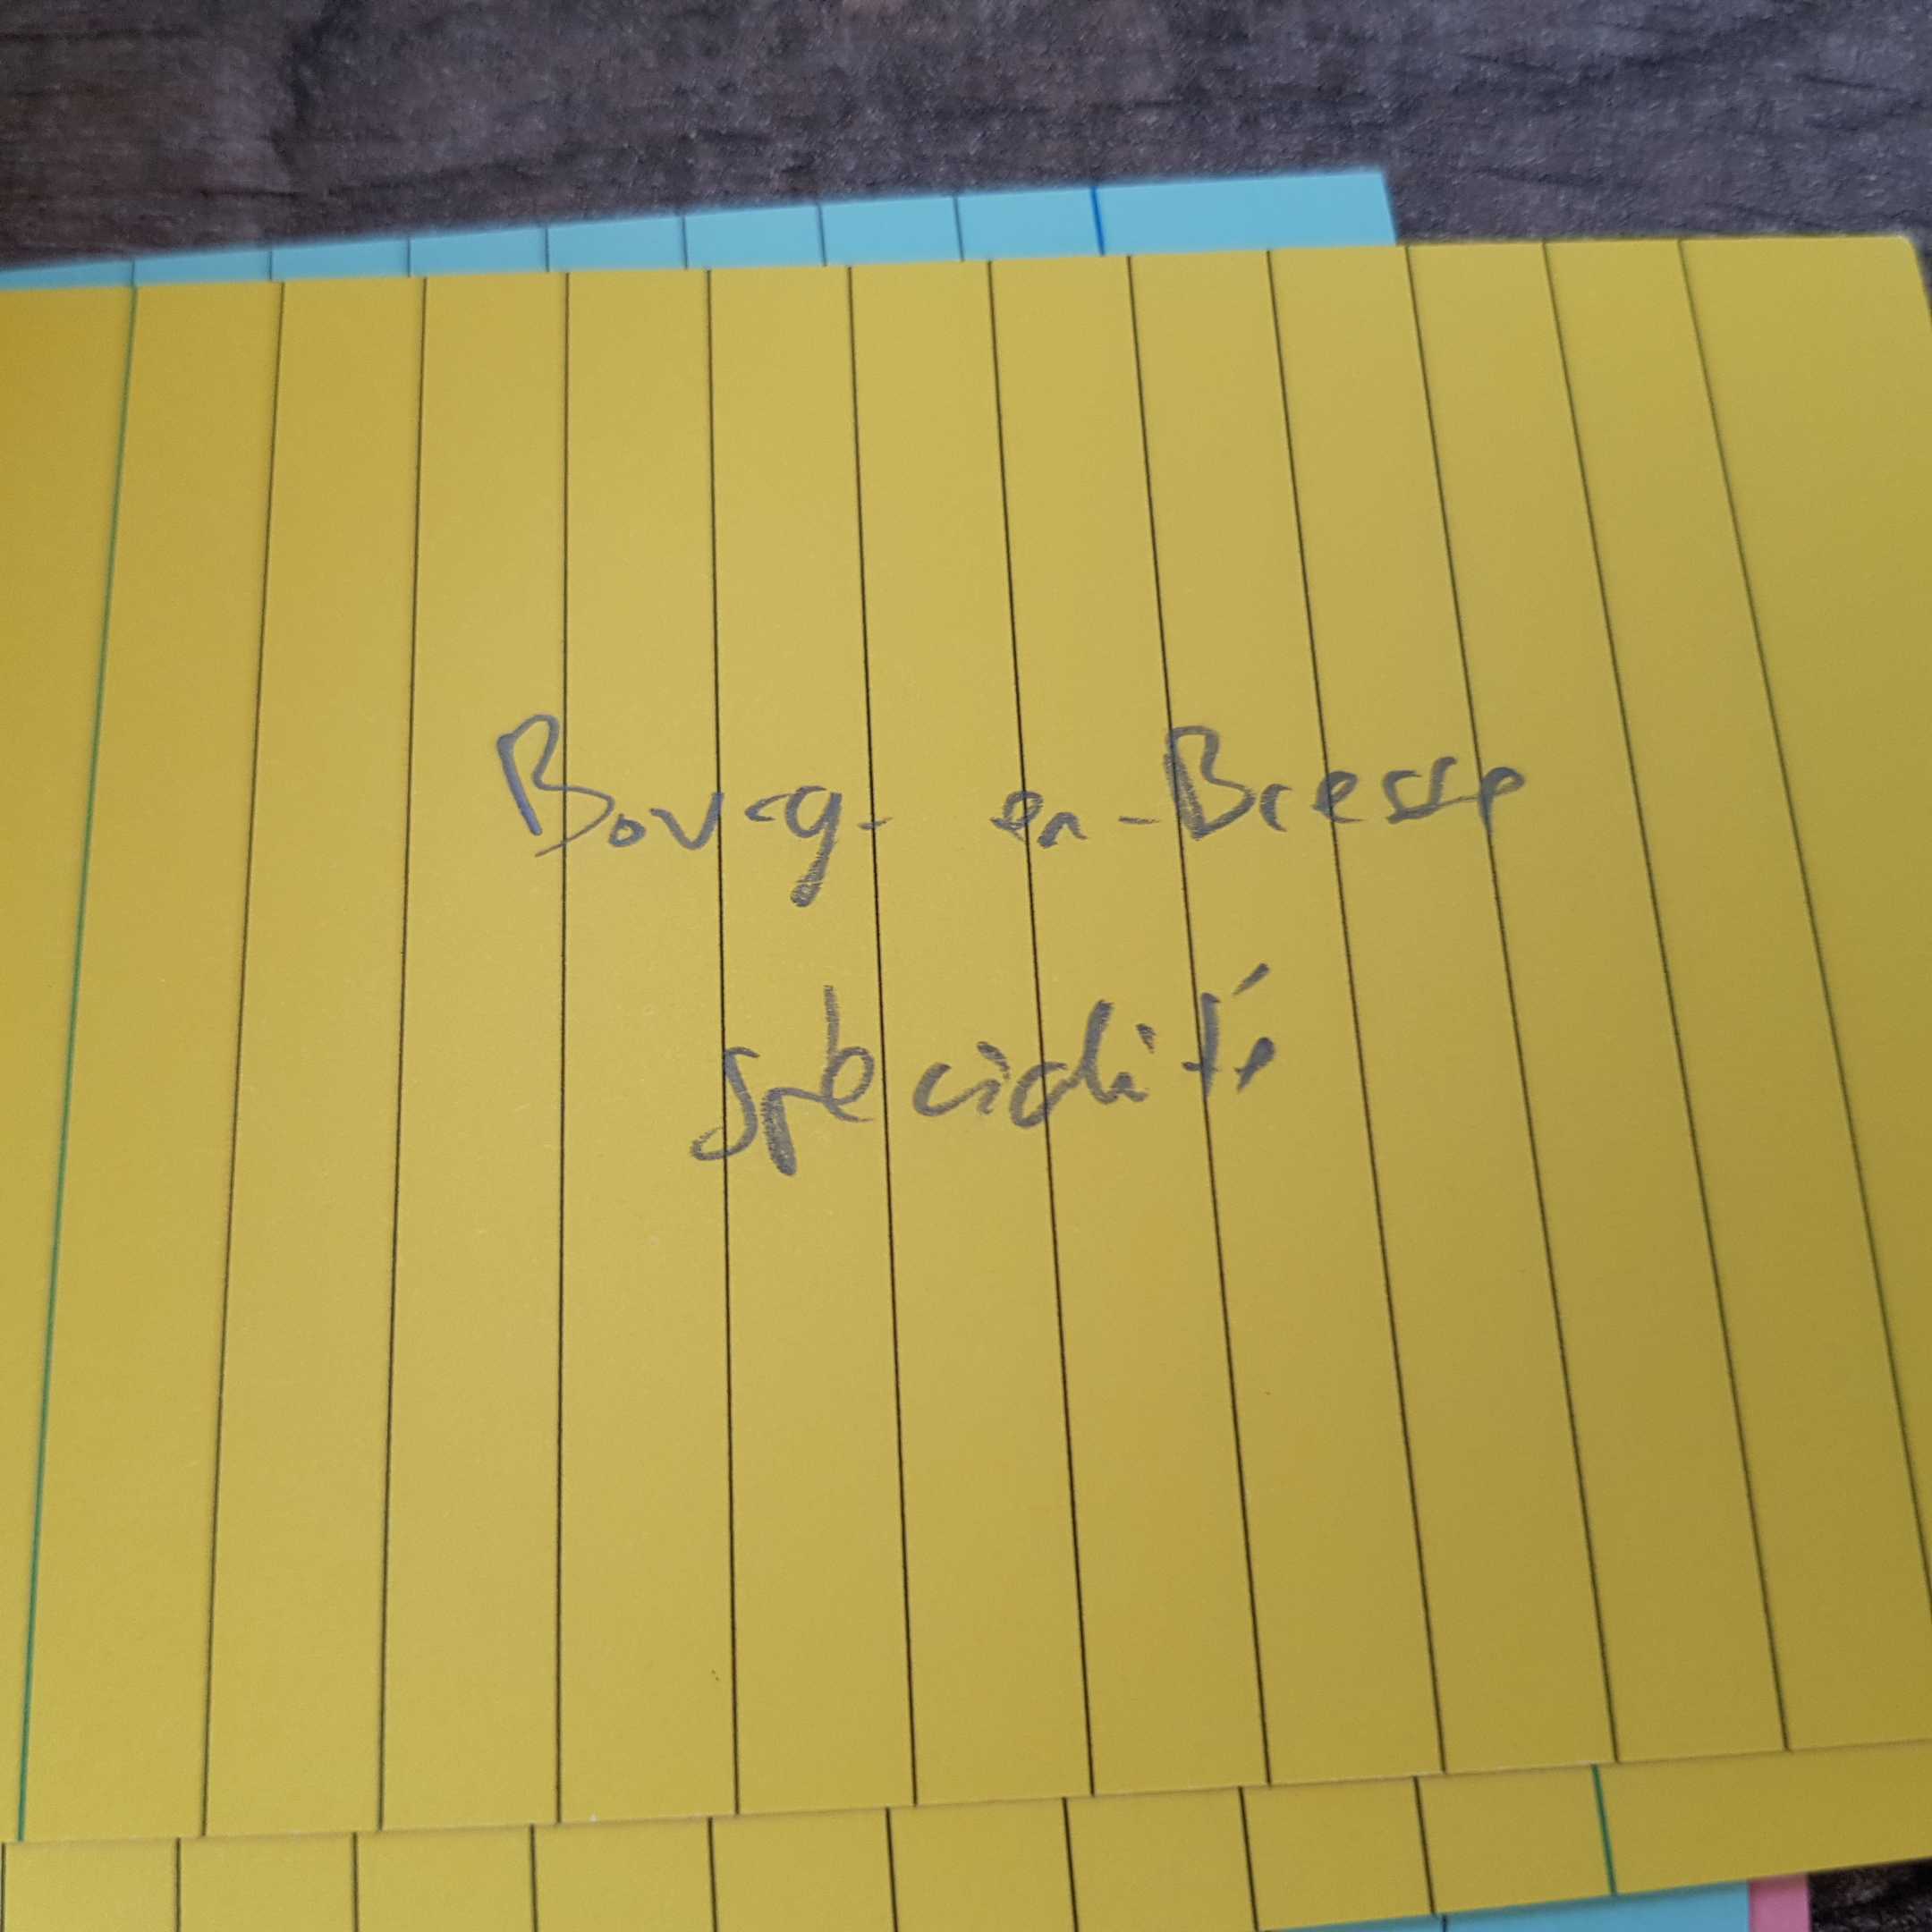 Bourg-en-Bresse
spécialité